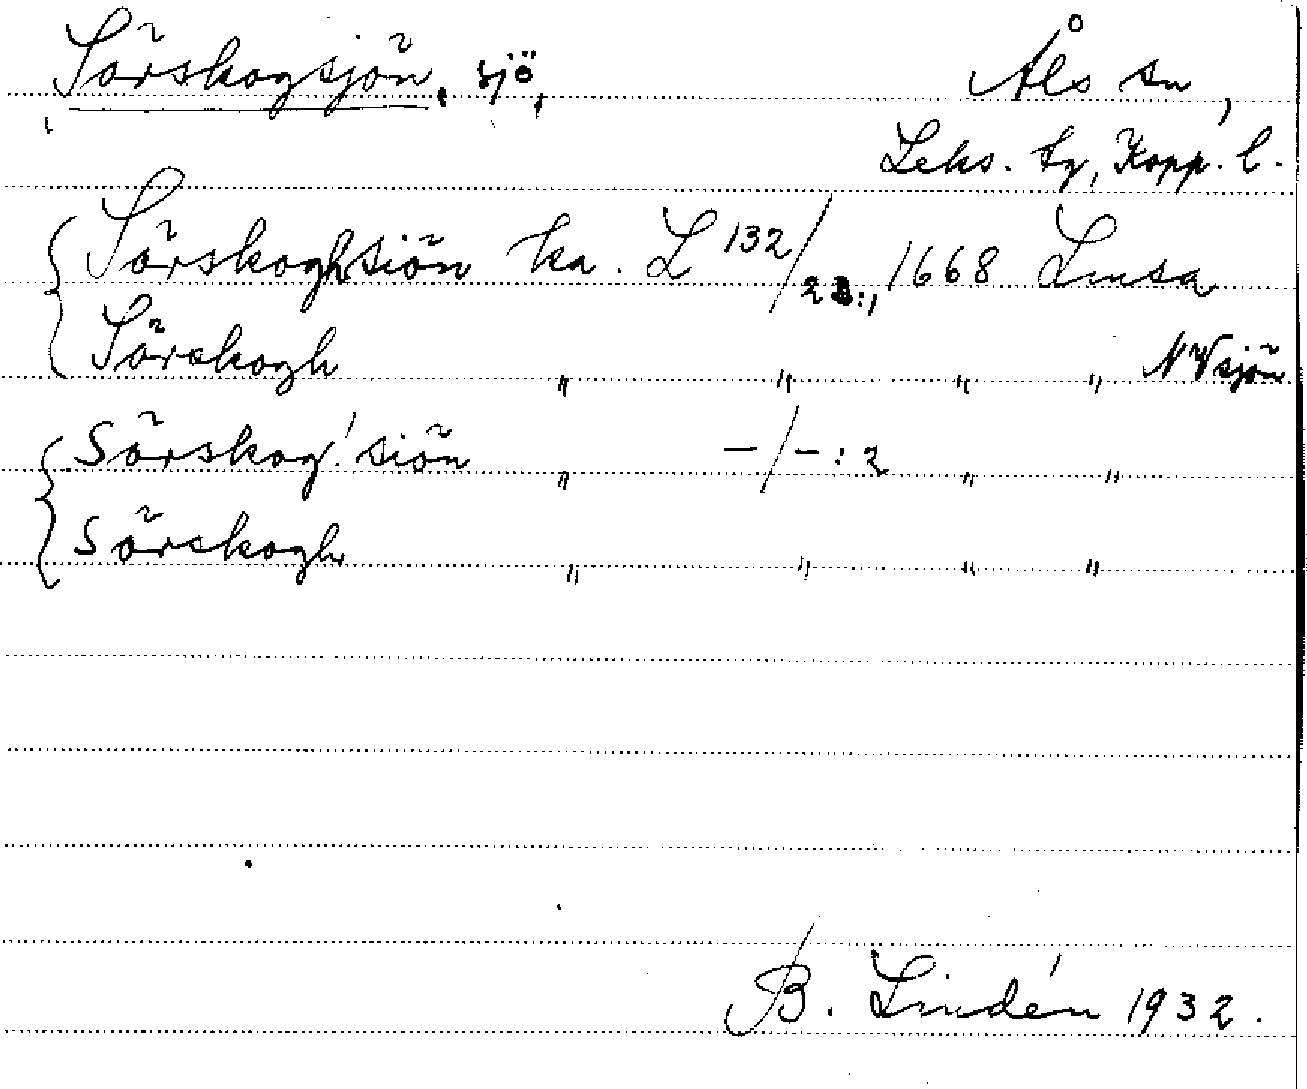 Sörskogsjön, sjö, Åls sn,
Leks. tg, Kopp. l.
Sörskoghsiön ka. L 132/2B:1 1668 Linsa
Sörskogh " " " " NVsjön
Sörskog! siön " -/-: 2 " "
Sörskogh " " " "
B. Lindén 1932.